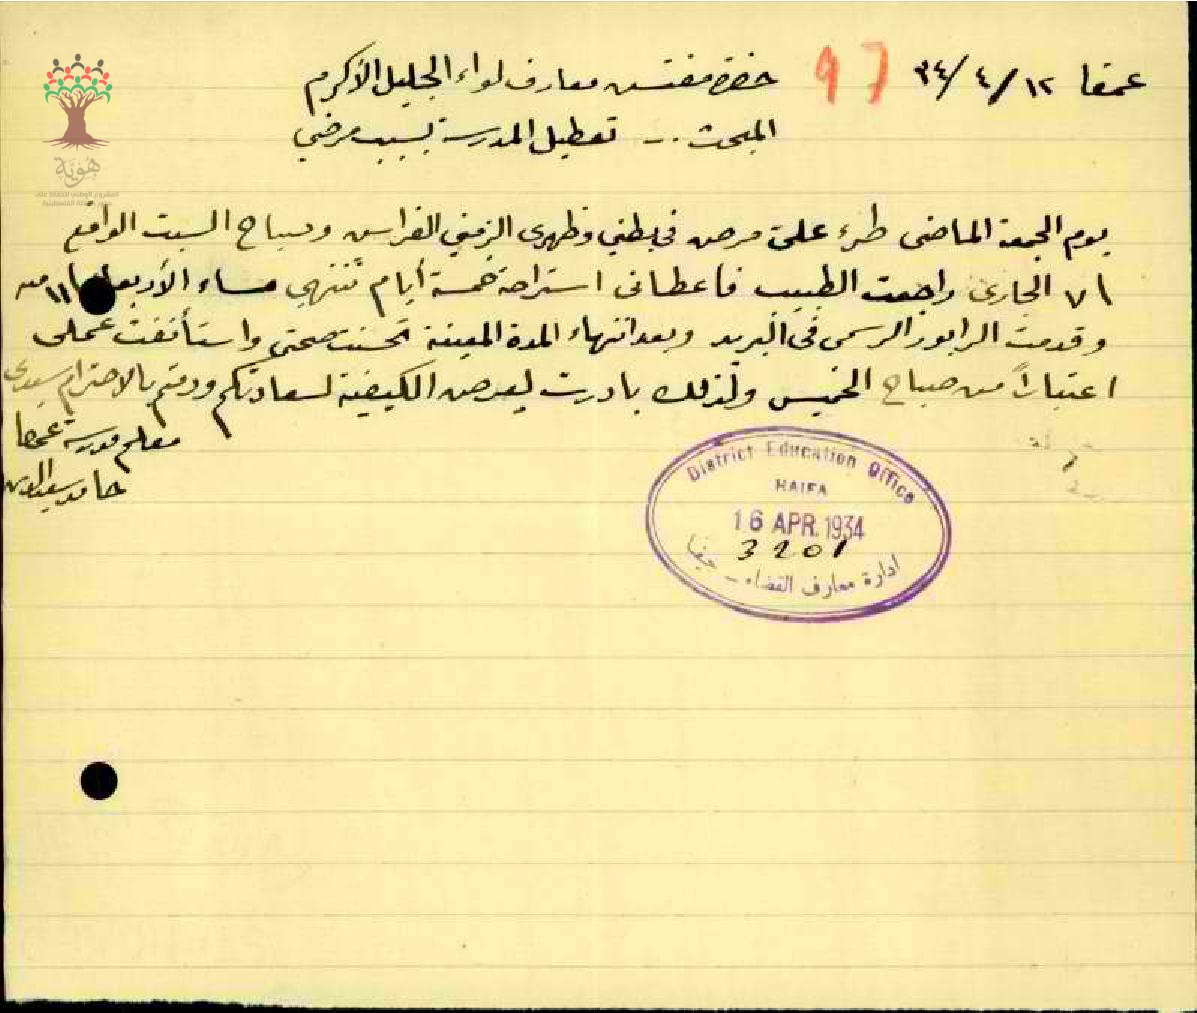 عمقا ١٢/٤/٣٤
97
حضرة مفتش معارف لواء الجليل الأكرم
المبحث :- تعطيل المدرسة بسبب مرضي
يوم الجمعة الماضي طرء علي مرض في بطني وظهري الزمني الفراش وصباح السبت الواقع
٧ الجاري راجعت الطبيب فأعطاني استراحة خمسة أيام تنتهي مساء الأربعاء ١١ منه
وقدمت الرابور الرسمي في البريد وبعد انتهاء المدة المعينة تحسنت صحتي واستأنفت عملي
اعتباراً من صباح الخميس ولذلك بادرت لعرض الكيفية لسعادتكم ودمتم بالاحترام سيدي
معلم مدرسة عمقا
حامد سعد الدين
District Education Office
HAIFA
16 APR. 1934
3201
ادارة معارف القضاء - حيفا
هَوِيَّة
المشروع الوطني للحفاظ على
العائلة الفلسطينية